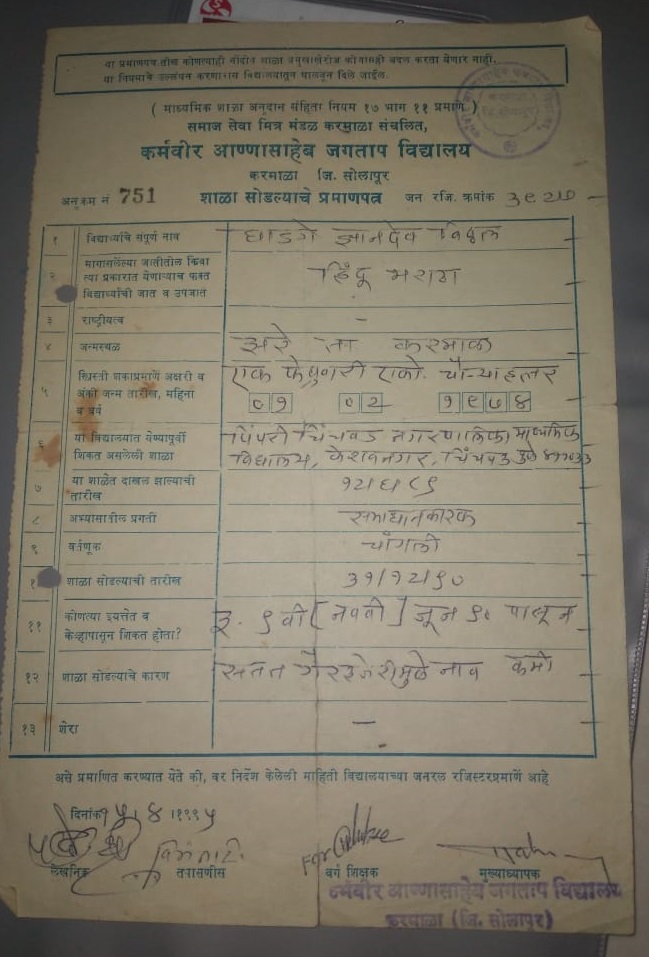 या प्रमाणपत्रातील कोणत्याही नोंदीत शाळा प्रमुखाखेरीज कोणासही बदल करता येणार नाही.
या नियमाचे उल्लंघन करणारास विद्यालयातून घालवून दिले जाईल.
( माध्यमिक शाळा अनुदान संहिता नियम १७ भाग ११ प्रमाणे )
समाज सेवा मित्र मंडळ करमाळा संचलित,
कर्मवीर आण्णासाहेब जगताप विद्यालय
करमाळा (जि. सोलापूर
अनुक्रम नं 751 शाळा सोडल्याचे प्रमाणपत्र जन रजि. क्रमांक
१ विद्यार्थ्याचे संपूर्ण नाव घाडगे ज्ञानदेव विठ्ठल
२ मागासलेल्या जातीतील किंवा त्या प्रकारात येणाऱ्याच फक्त विद्यार्थ्याची जात व उपजात हिंदू मराठा
३ राष्ट्रीयत्व -
४ जन्मस्थळ झरे ता करमाळा
५ ख्रिस्ती शकाप्रमाणें अक्षरी व अंकी जन्म तारीख, महिना व वर्ष एक फेब्रुवारी एको. चौऱ्याहत्तर
०१ ०२ १९७४
६ या विद्यालयात येण्यापूर्वी शिकत असलेली शाळा पिंपरी चिंचवड नगरपालिका माध्यमिक
विद्यालय, केशवनगर, चिंचवड पुणे ४११०३३
७ या शाळेत दाखल झाल्याची तारीख १२/६/८९
८ अभ्यासातील प्रगती समाधानकारक
९ वर्तणूक चांगली
१० शाळा सोडल्याची तारीख ३१/१२/९०
११ कोणत्या इयत्तेत व केव्हापासून शिकत होता? इ. ९ वी [ नववी ] जून ९० पासून
१२ शाळा सोडल्याचे कारण सतत गैरहजेरीमुळे नाव कमी
१३ शेरा —
असे प्रमाणित करण्यात येते की, वर निर्देश केलेली माहिती विद्यालयाच्या जनरल रजिस्टरप्रमाणें आहे
दिनांक १५/४/१९९५
लेखनिक तपासणीस For वर्ग शिक्षक मुख्याध्यापक
कर्मवीर आण्णासाहेब जगताप विद्यालय
करमाळा (जि. सोलापूर)